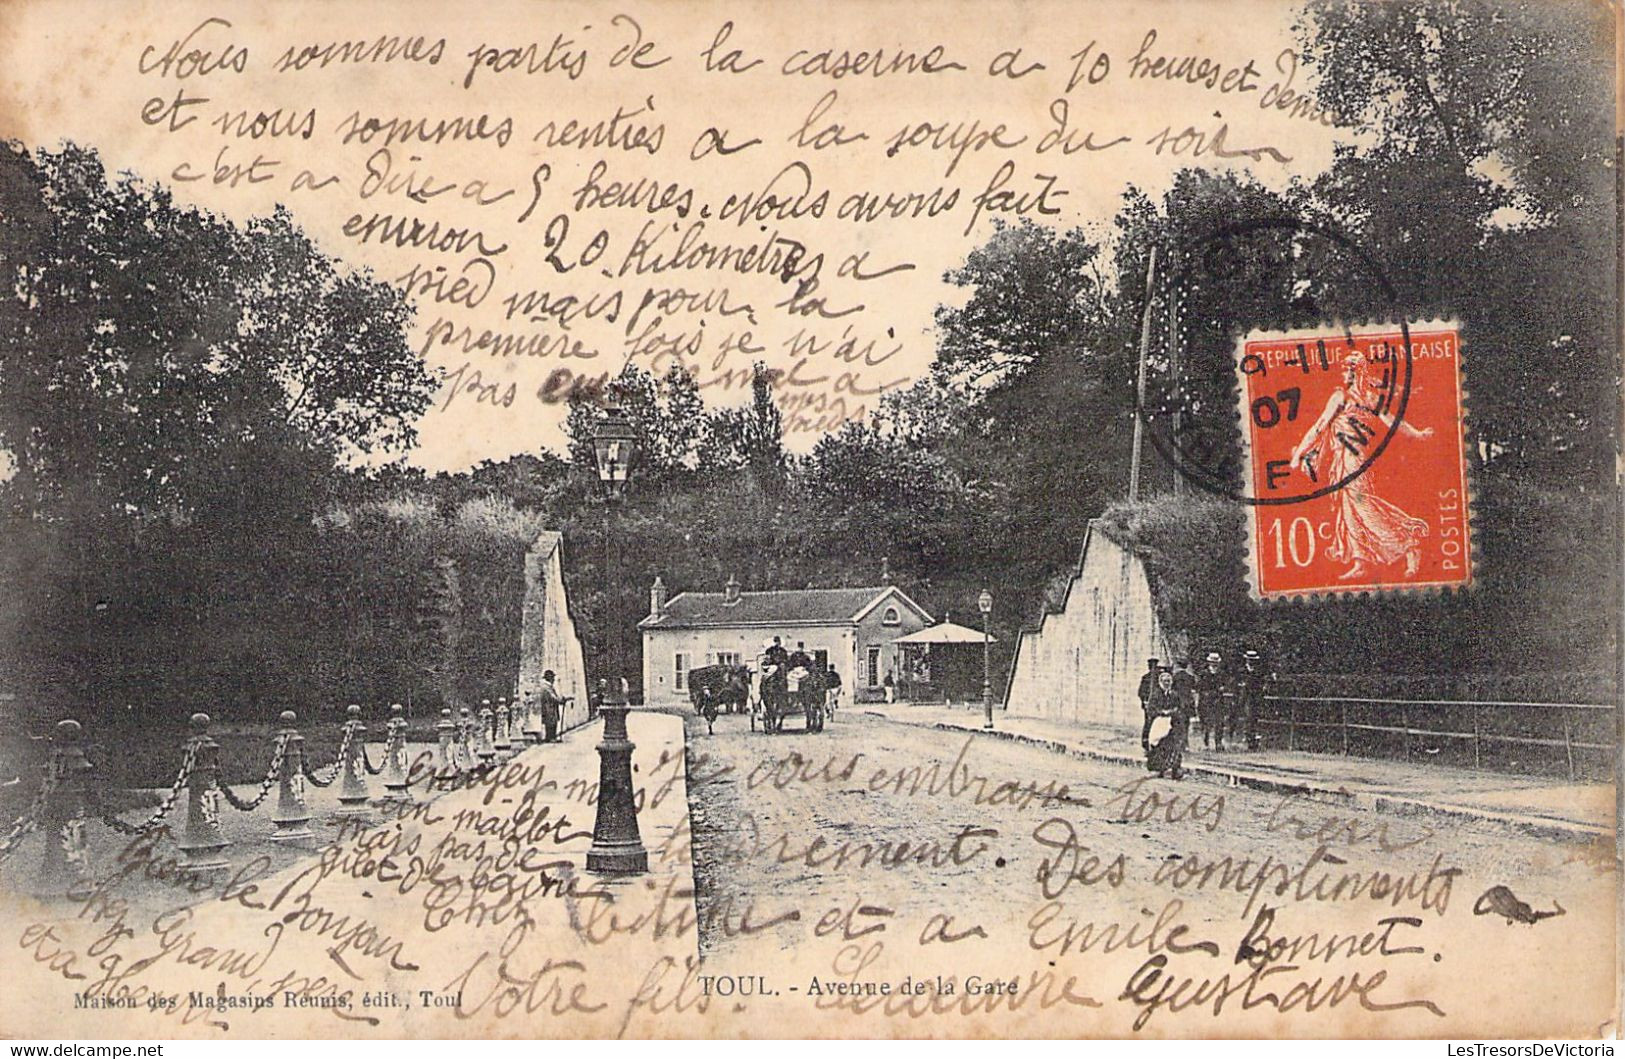 Nous sommes partis de la caserne a 10 heures et demie
et nous sommes rentrés a la soupe du soir
c'est a dire a 5 heures. Nous avons fait
environ 20 Kilomètres a
pied mais pour la
première fois je n'ai
pas eu de mal a
mes
pieds.
REPUBLIQUE FRANÇAISE
9-11
07
ET MLLE
10c
POSTES
Envoyez moi
un maillot
mais pas de
gilet de laine
Je vous embrasse tous bien
tendrement. Des compliments a
chez Titine et a Emile Bonnet.
Votre fils. Gustave
le Bonjour
chez Grand père
et a Henri
TOUL. - Avenue de la Gare
Maison des Magasins Réunis, édit., Toul
LesTresorsDeVictoria